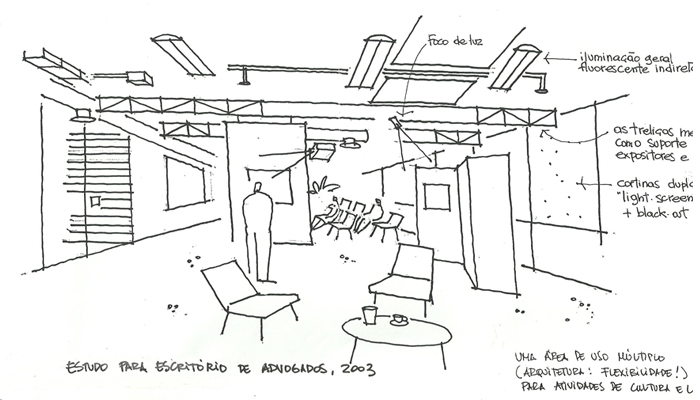 Foco de luz
iluminação geral
fluorescente indireta
as treliças me
como suporte
expositores e
cortinas dupl
"light-screen
+ black-out
ESTUDO PARA ESCRITÓRIO DE ADVOGADOS, 2003
UMA ÁREA DE USO MÚLTIPLO
(ARQUITETURA: FLEXIBILIDADE!)
PARA ATIVIDADES DE CULTURA E L